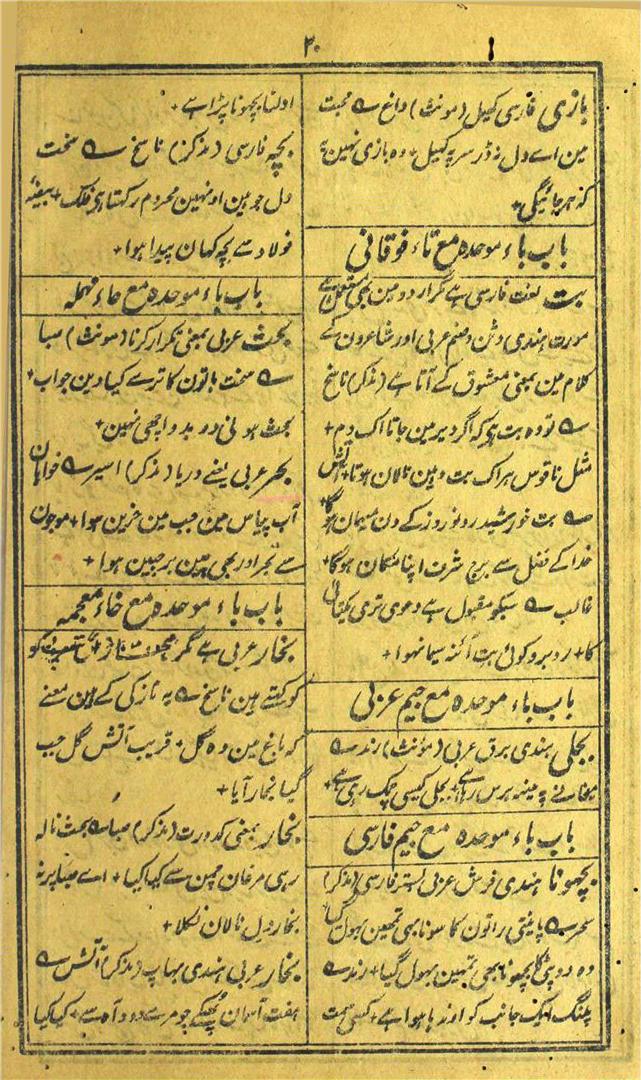 ۲۰
بازی فارسی کھیل (مونث) داغ ؎ محبت
مین اے دل نڈر سر پہ کھیل + وہ بازی نہین یہ
کہ ہر جائیگی +
باب باء موحدہ مع تاء فوقانی
بت لغت فارسی ہے مگر اردو مین بھی مستعمل ہے
مورت ہندی وثن و صنم عربی اور شاعرون کے
کلام مین بمعنی معشوق کے آتا ہے (مذکر) ناسخ
؎ تو وہ بت ہی کہ اگر دیر مین جاتا اک دم +
مثل ناقوس ہر اک بت وہین نالان ہوتا + آتش
؎ بت خورشید رو نوروز کے دن میہمان ہوگا +
خدا کے فضل سے برج شرف اپنا مکان ہوگا +
غالب ؎ سبکو مقبول ہے دعوی تری یکتائی
کا + روبرو کوئی بت آئنہ سیما نہوا +
باب باء موحدہ مع جیم عربی
بجلی ہندی برق عربی (مونث) رند ؎
میخانے پہ مینہ برس رہا ہے + بجلی کیسی چمک رہی ہے +
باب باء موحدہ مع جیم فارسی
بچھونا ہندی فرش عربی بستر فارسی (مذکر)
سحر ؎ پائینتی راتون کا سونا بھی تمھین بھول گیا
وہ دوپٹے کا بچھونا بھی تمہین بھول گیا + رند ؎
پلنگ ایک جانب کو اوندہا ہوا ہے + کسی سمت
اولٹا بچھونا پڑا ہے +
بچہ فارسی (مذکر) ناسخ ؎ سخت
دل جو ہین اونہین محروم رکھتا ہی فلک + بیضۂ
فولاد سے بچہ کہان پیدا ہوا +
باب باء موحدہ مع حاء مہملہ
بحث عربی بمعنی تکرار کرنا (مونث) صبا
؎ سخت باتون کا ترے کیا دین جواب +
بحث ہونی دو بدو اچھی نہین +
بحر عربی یعنے دریا (مذکر) اسیر ؎ خواہان
آب پیاس مین جب مین حزین ہوا + موجون
سے بحر اور بھی چین بر جبین ہوا +
باب باء موحدہ مع خاء معجمہ
بخار عربی ہے مگر
کو کہتے ہین ناسخ ؎ یہ نازکی کے ہین معنے
کہ باغ مین وہ گل + قریب آتش گل جب
گیا بخار آیا +
بخار بمعنی کدورت (مذکر) صبا ؎ بحث نالہ
رہی مرغان چمن سے کیا کیا + اے صبا پر نہ
بخار دل نالان نکلا +
بخار عربی ہندی بہاپ (مذکر) آتش ؎
ہفت آسمان پھنکے جو مرے دود آہ سے + کیا کیا